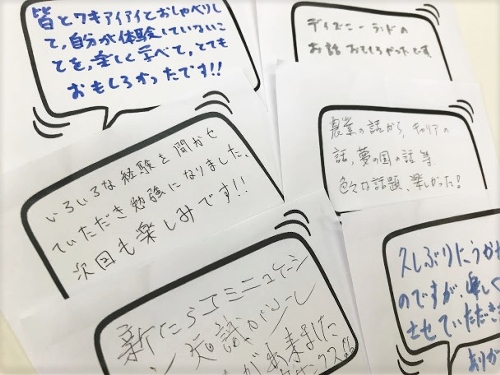 皆とワキアイアイとおしゃべりし
て、自分が体験していないこ
とを、楽しく学べて、とても
おもしろかったです!!
ディズニーランドの
お話 おもしろかったです
いろいろな経験を聞かせ
ていただき勉強になりました。
次回も楽しみです!!
農業の話から、キャリアの
話、夢の国の話 等
色々な話題 楽しかった!
新たなコミニュケーシ
久しぶりにうかが
のですが、楽しく
させていただき
ありが